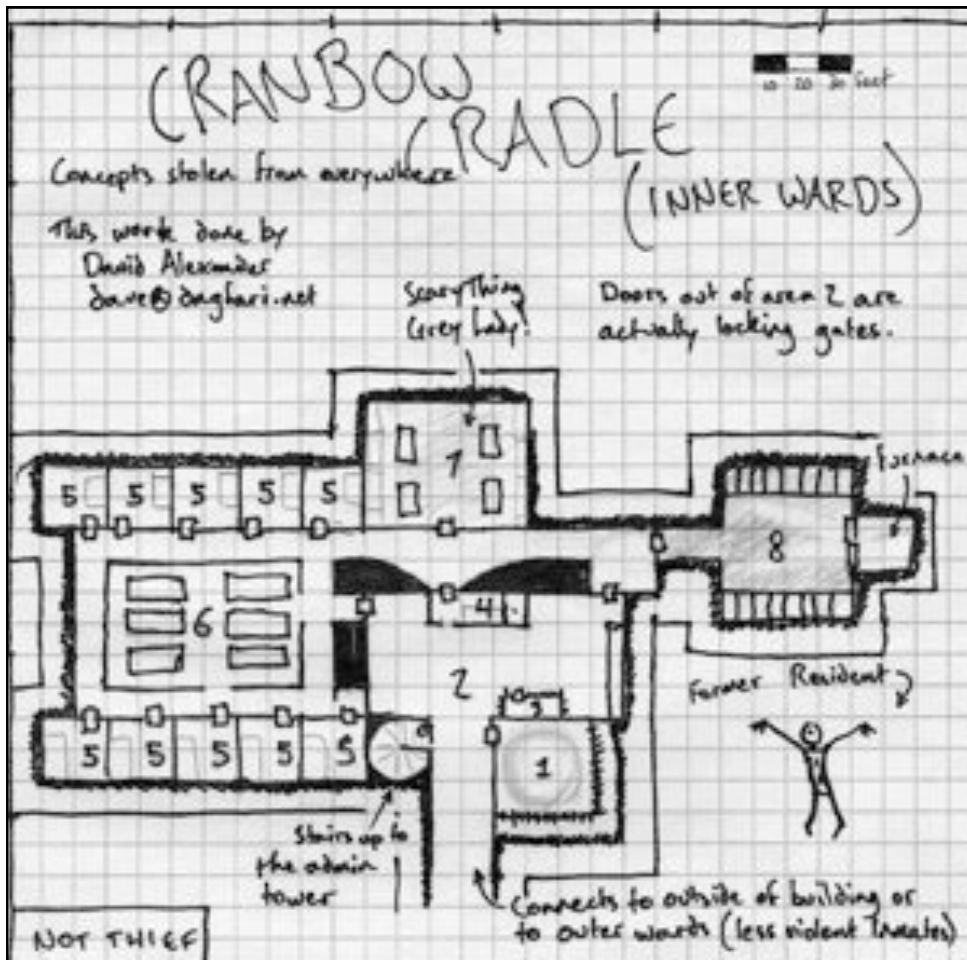 CRANBOW
CRADLE
(INNER WARDS)
10 20 30 feet
Concepts stolen from everywhere
This work done by
David Alexander
dave@daghari.net
Scary Thing
Grey Lady!
Doors out of area 2 are
actually locking gates.
Furnace
5 5 5 5 5
7
8
6
4
2
3
5 5 5 5 5
1
Former Resident
Stairs up to
the admin
tower
Connects to outside of building or
to outer wards (less violent Inmates)
NOT THIEF